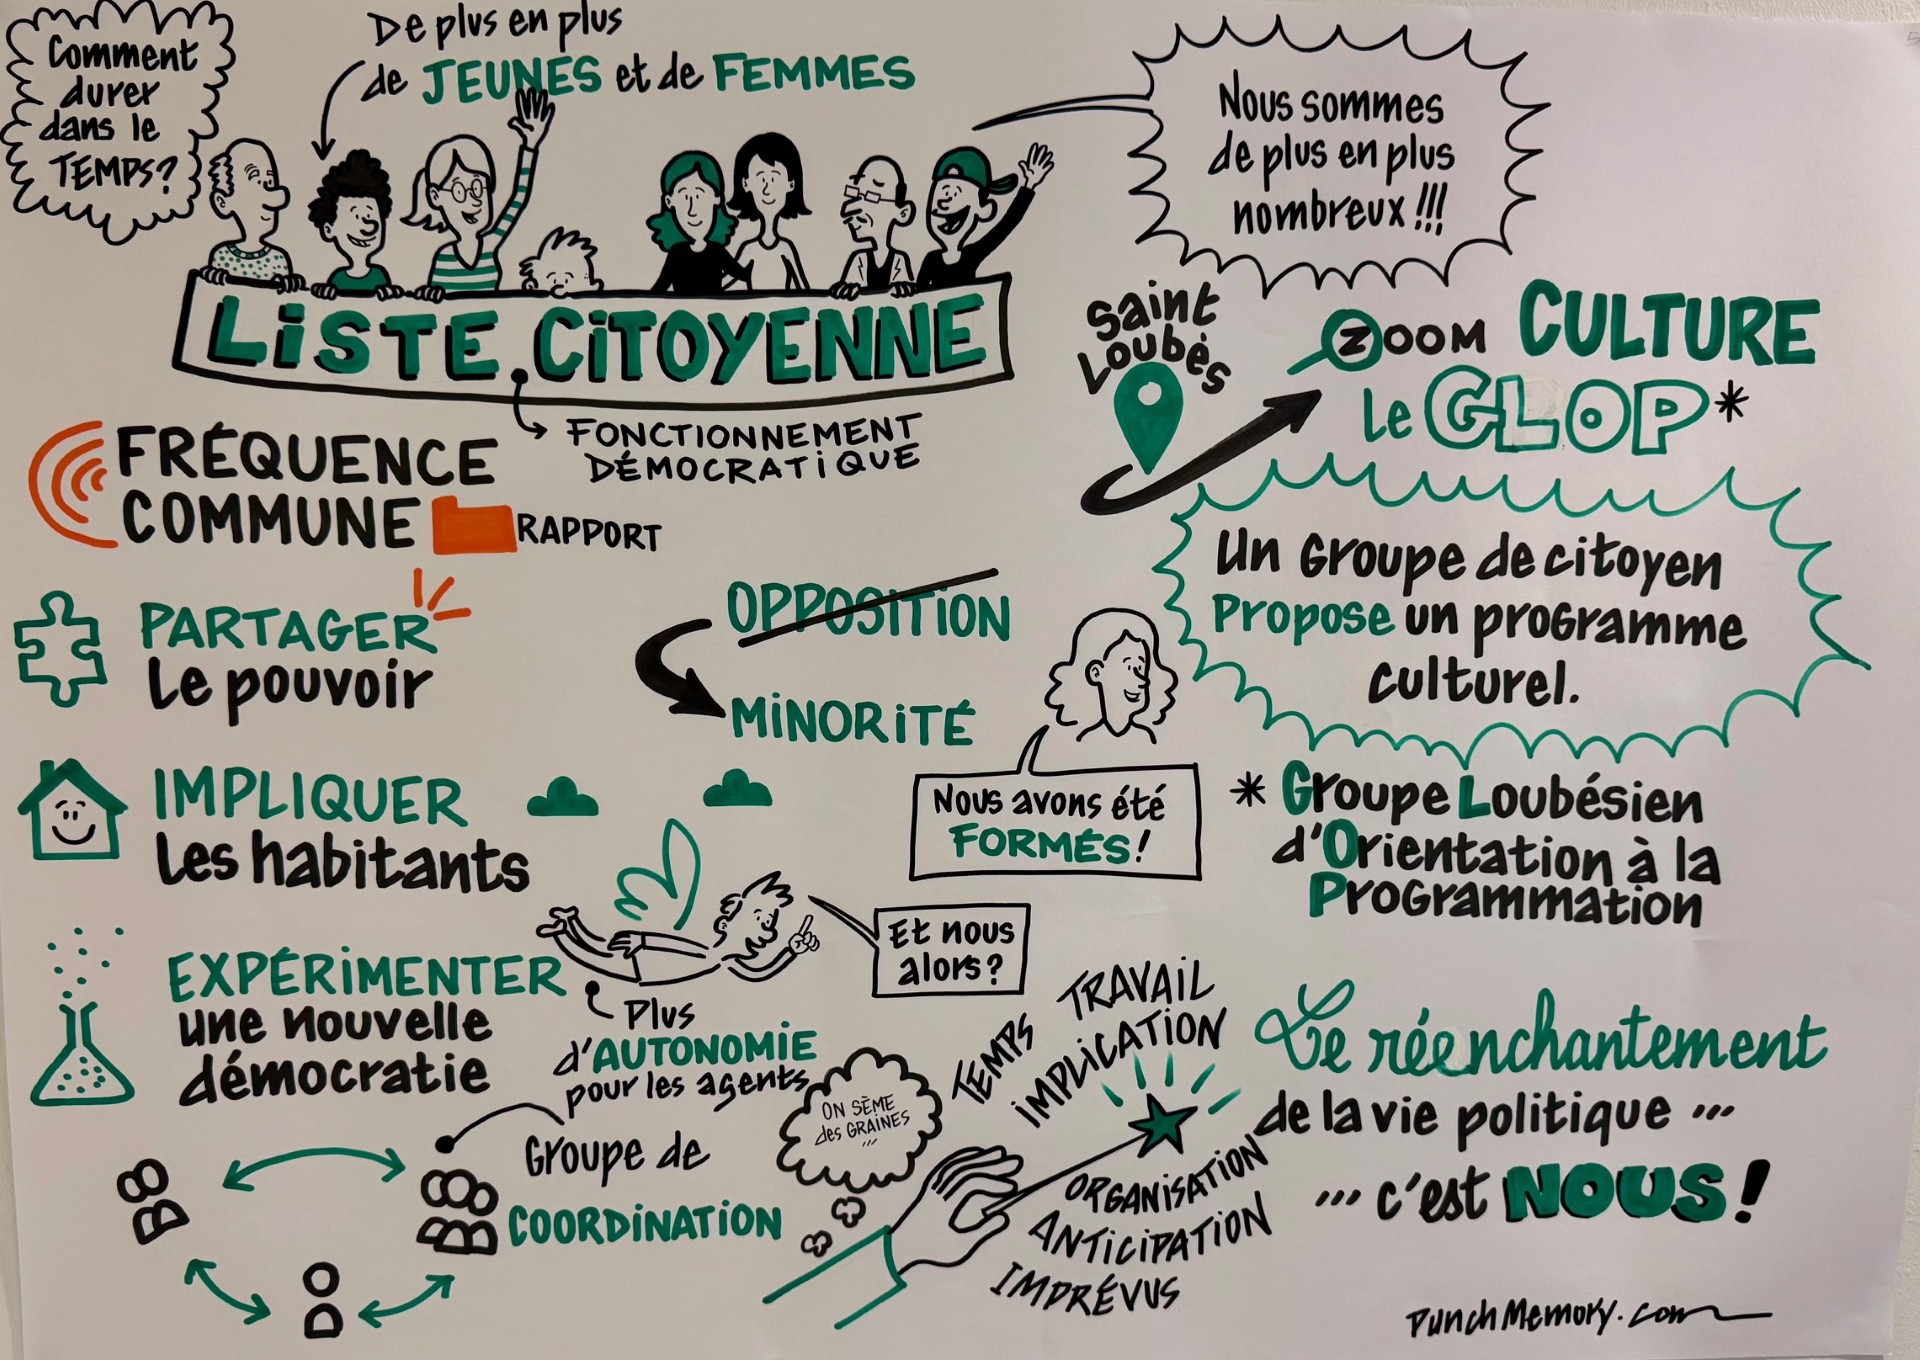 Comment
durer
dans le
TEMPS?
De plus en plus
de JEUNES et de FEMMES
Nous sommes
de plus en plus
nombreux !!!
LISTE CITOYENNE
FONCTIONNEMENT
DÉMOCRATIQUE
Saint
Loubès
ZOOM CULTURE
le GLOP*
FRÉQUENCE
COMMUNE
RAPPORT
Un Groupe de citoyen
Propose un programme
culturel.
PARTAGER
le pouvoir
OPPOSITION
MINORITÉ
Nous avons été
FORMÉS!
* Groupe Loubésien
d'Orientation à la
Programmation
IMPLIQUER
les habitants
Et nous
alors?
EXPÉRIMENTER
une nouvelle
démocratie
Plus
d'AUTONOMIE
pour les agents
Groupe de
COORDINATION
ON SÈME
des GRAINES
...
TEMPS
TRAVAIL
IMPLICATION
ORGANISATION
ANTICIPATION
IMPRÉVUS
Le réenchantement
de la vie politique ...
... c'est NOUS!
PunchMemory.com